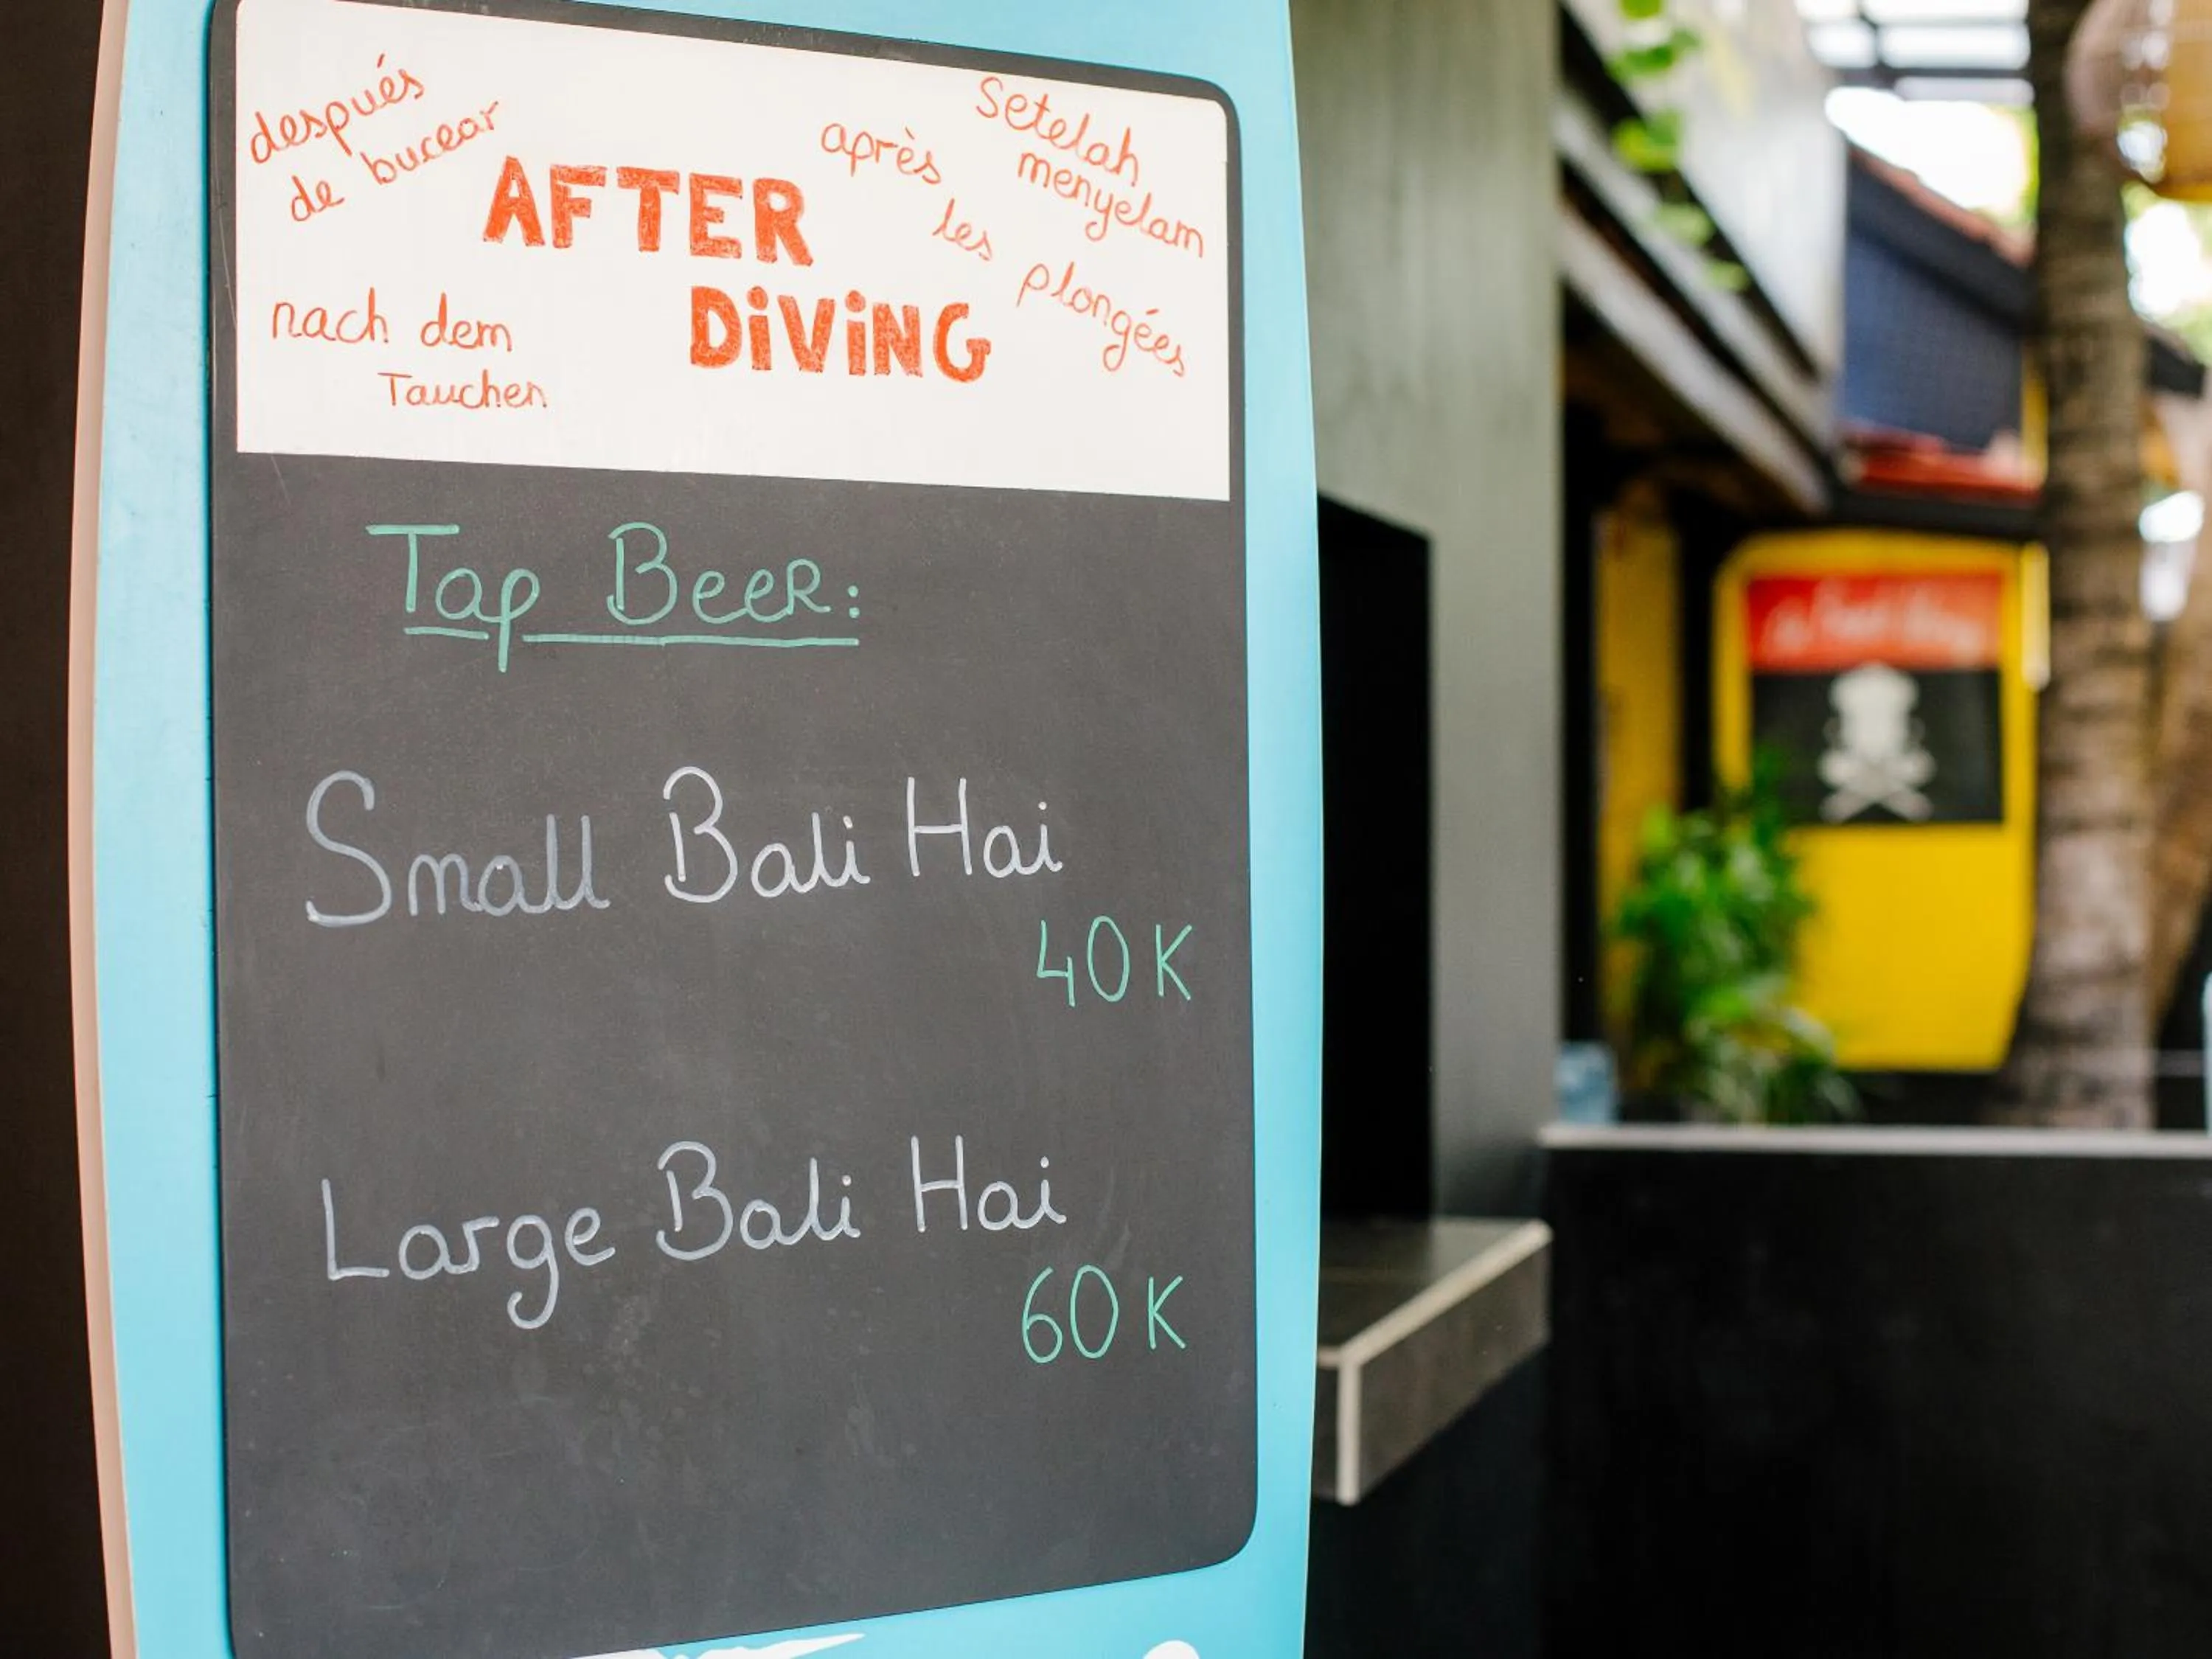 después
de bucear
AFTER
DiViNG
après
les
plongées
Setelah
menyelam
nach dem
Tauchen
Tap BeeR:
Small Bali Hai
40K
Large Bali Hai
60K